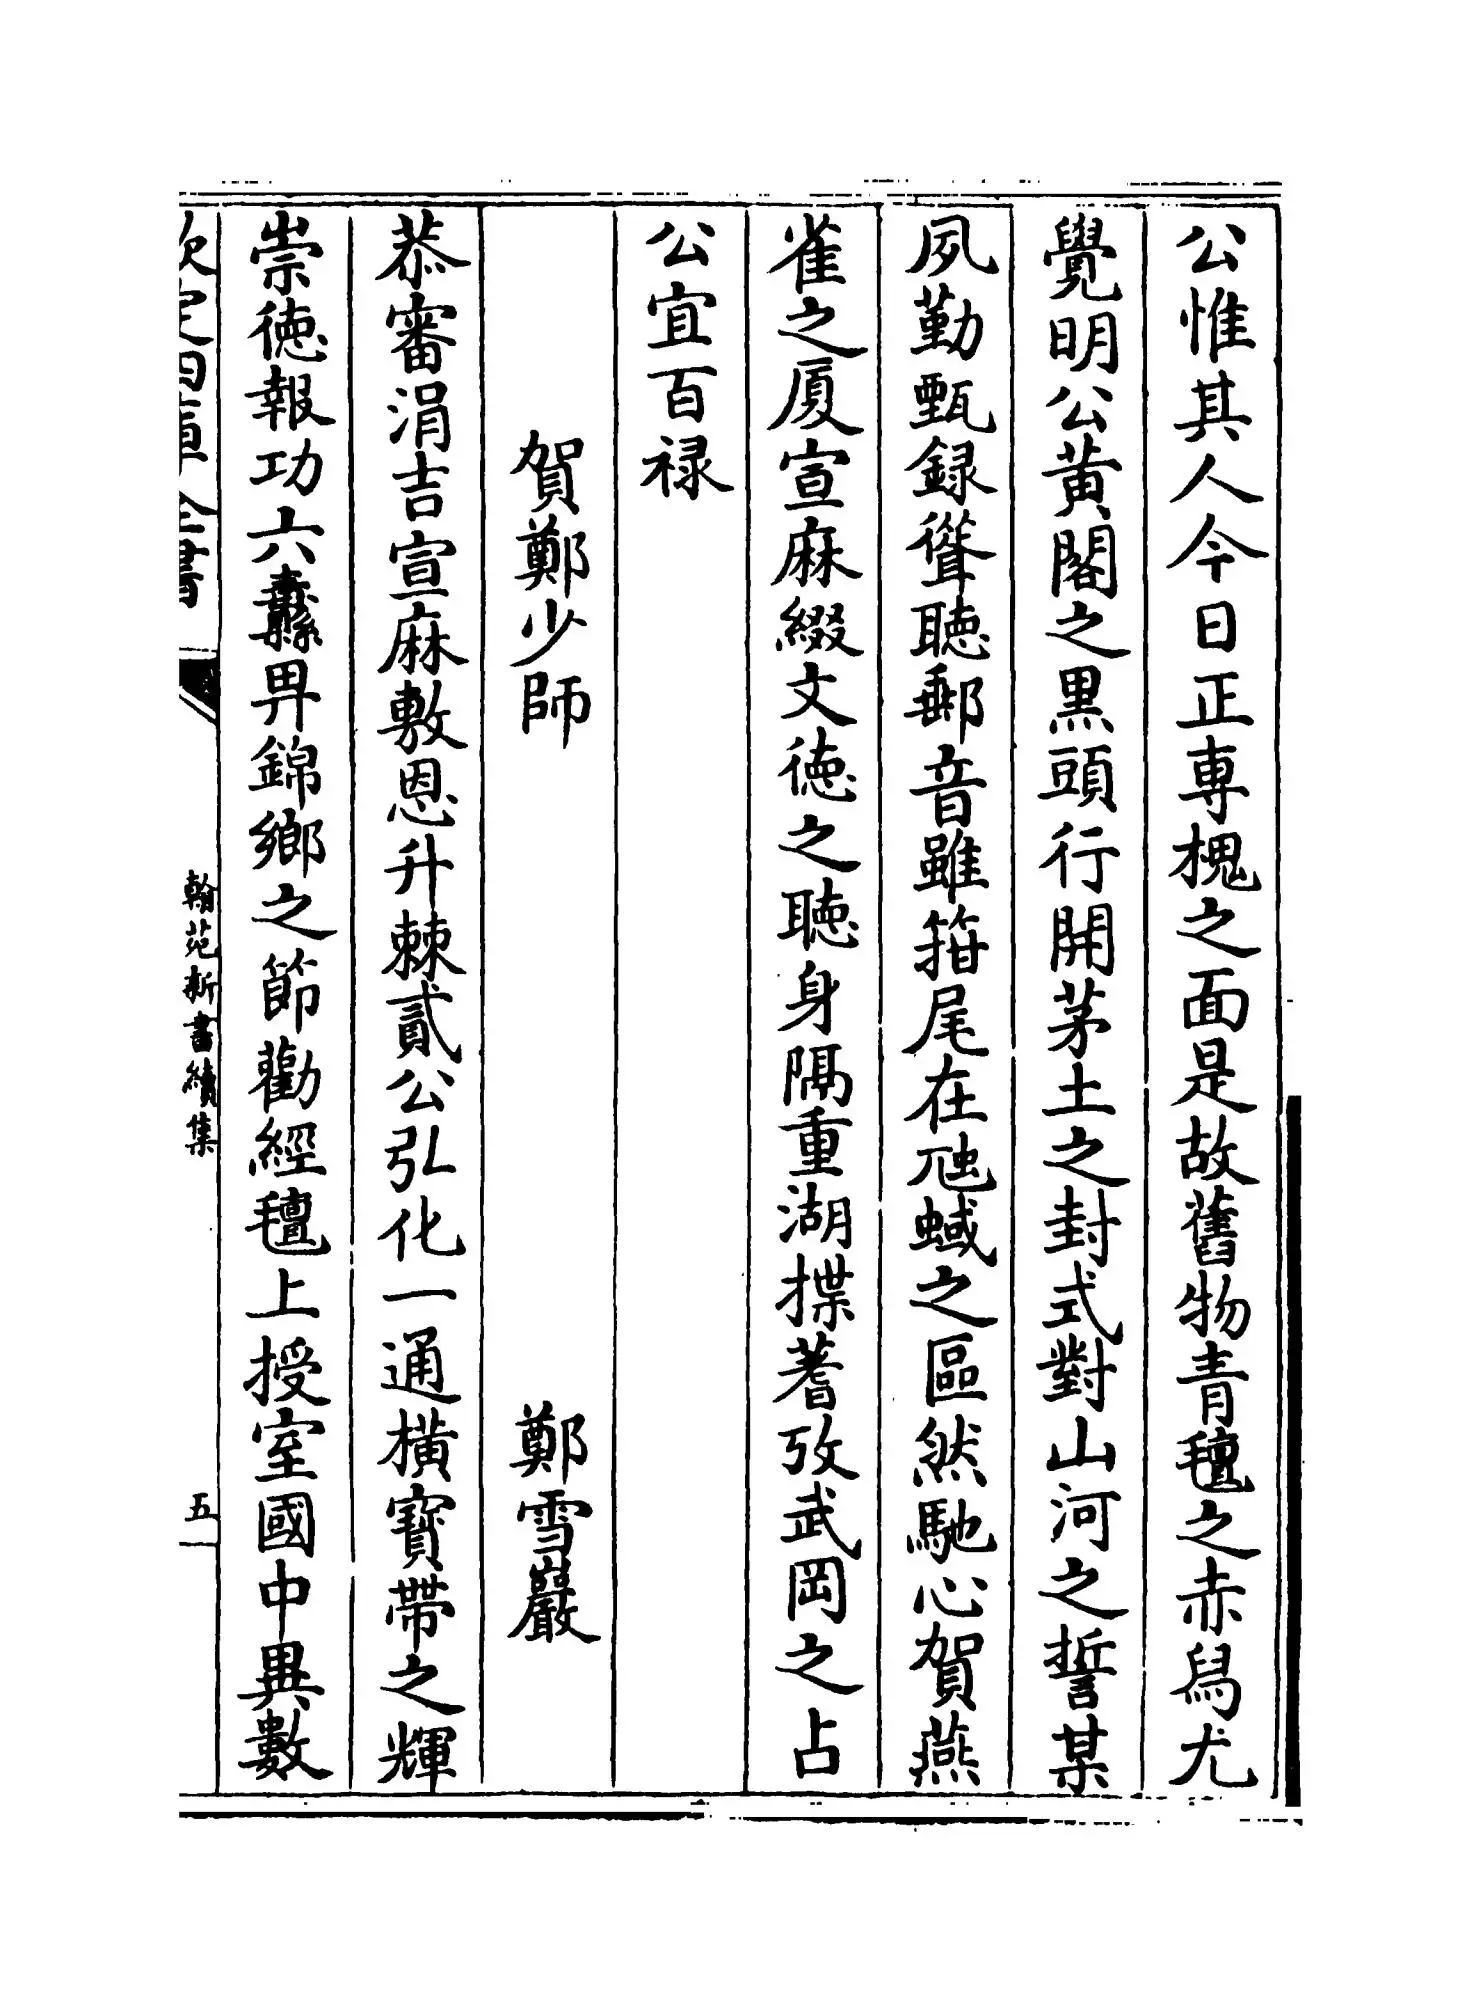 公惟其人今日正專槐之面是故舊物青氊之赤舄尤
覺明公黄閣之黒頭行開茅土之封式對山河之誓某
夙勤甄録聳聽郵音雖箝尾在虺蜮之區然馳心賀燕
雀之厦宣麻綴文徳之聽身隔重湖揲蓍攷武岡之占
公宜百禄
賀鄭少師 鄭雪巖
恭審涓吉宣麻敷恩升棘貳公弘化一通橫寳帶之輝
崇徳報功六纛畀錦鄉之節勸經氊上授室國中異數
欽定四庫全書
翰苑新書續集
五